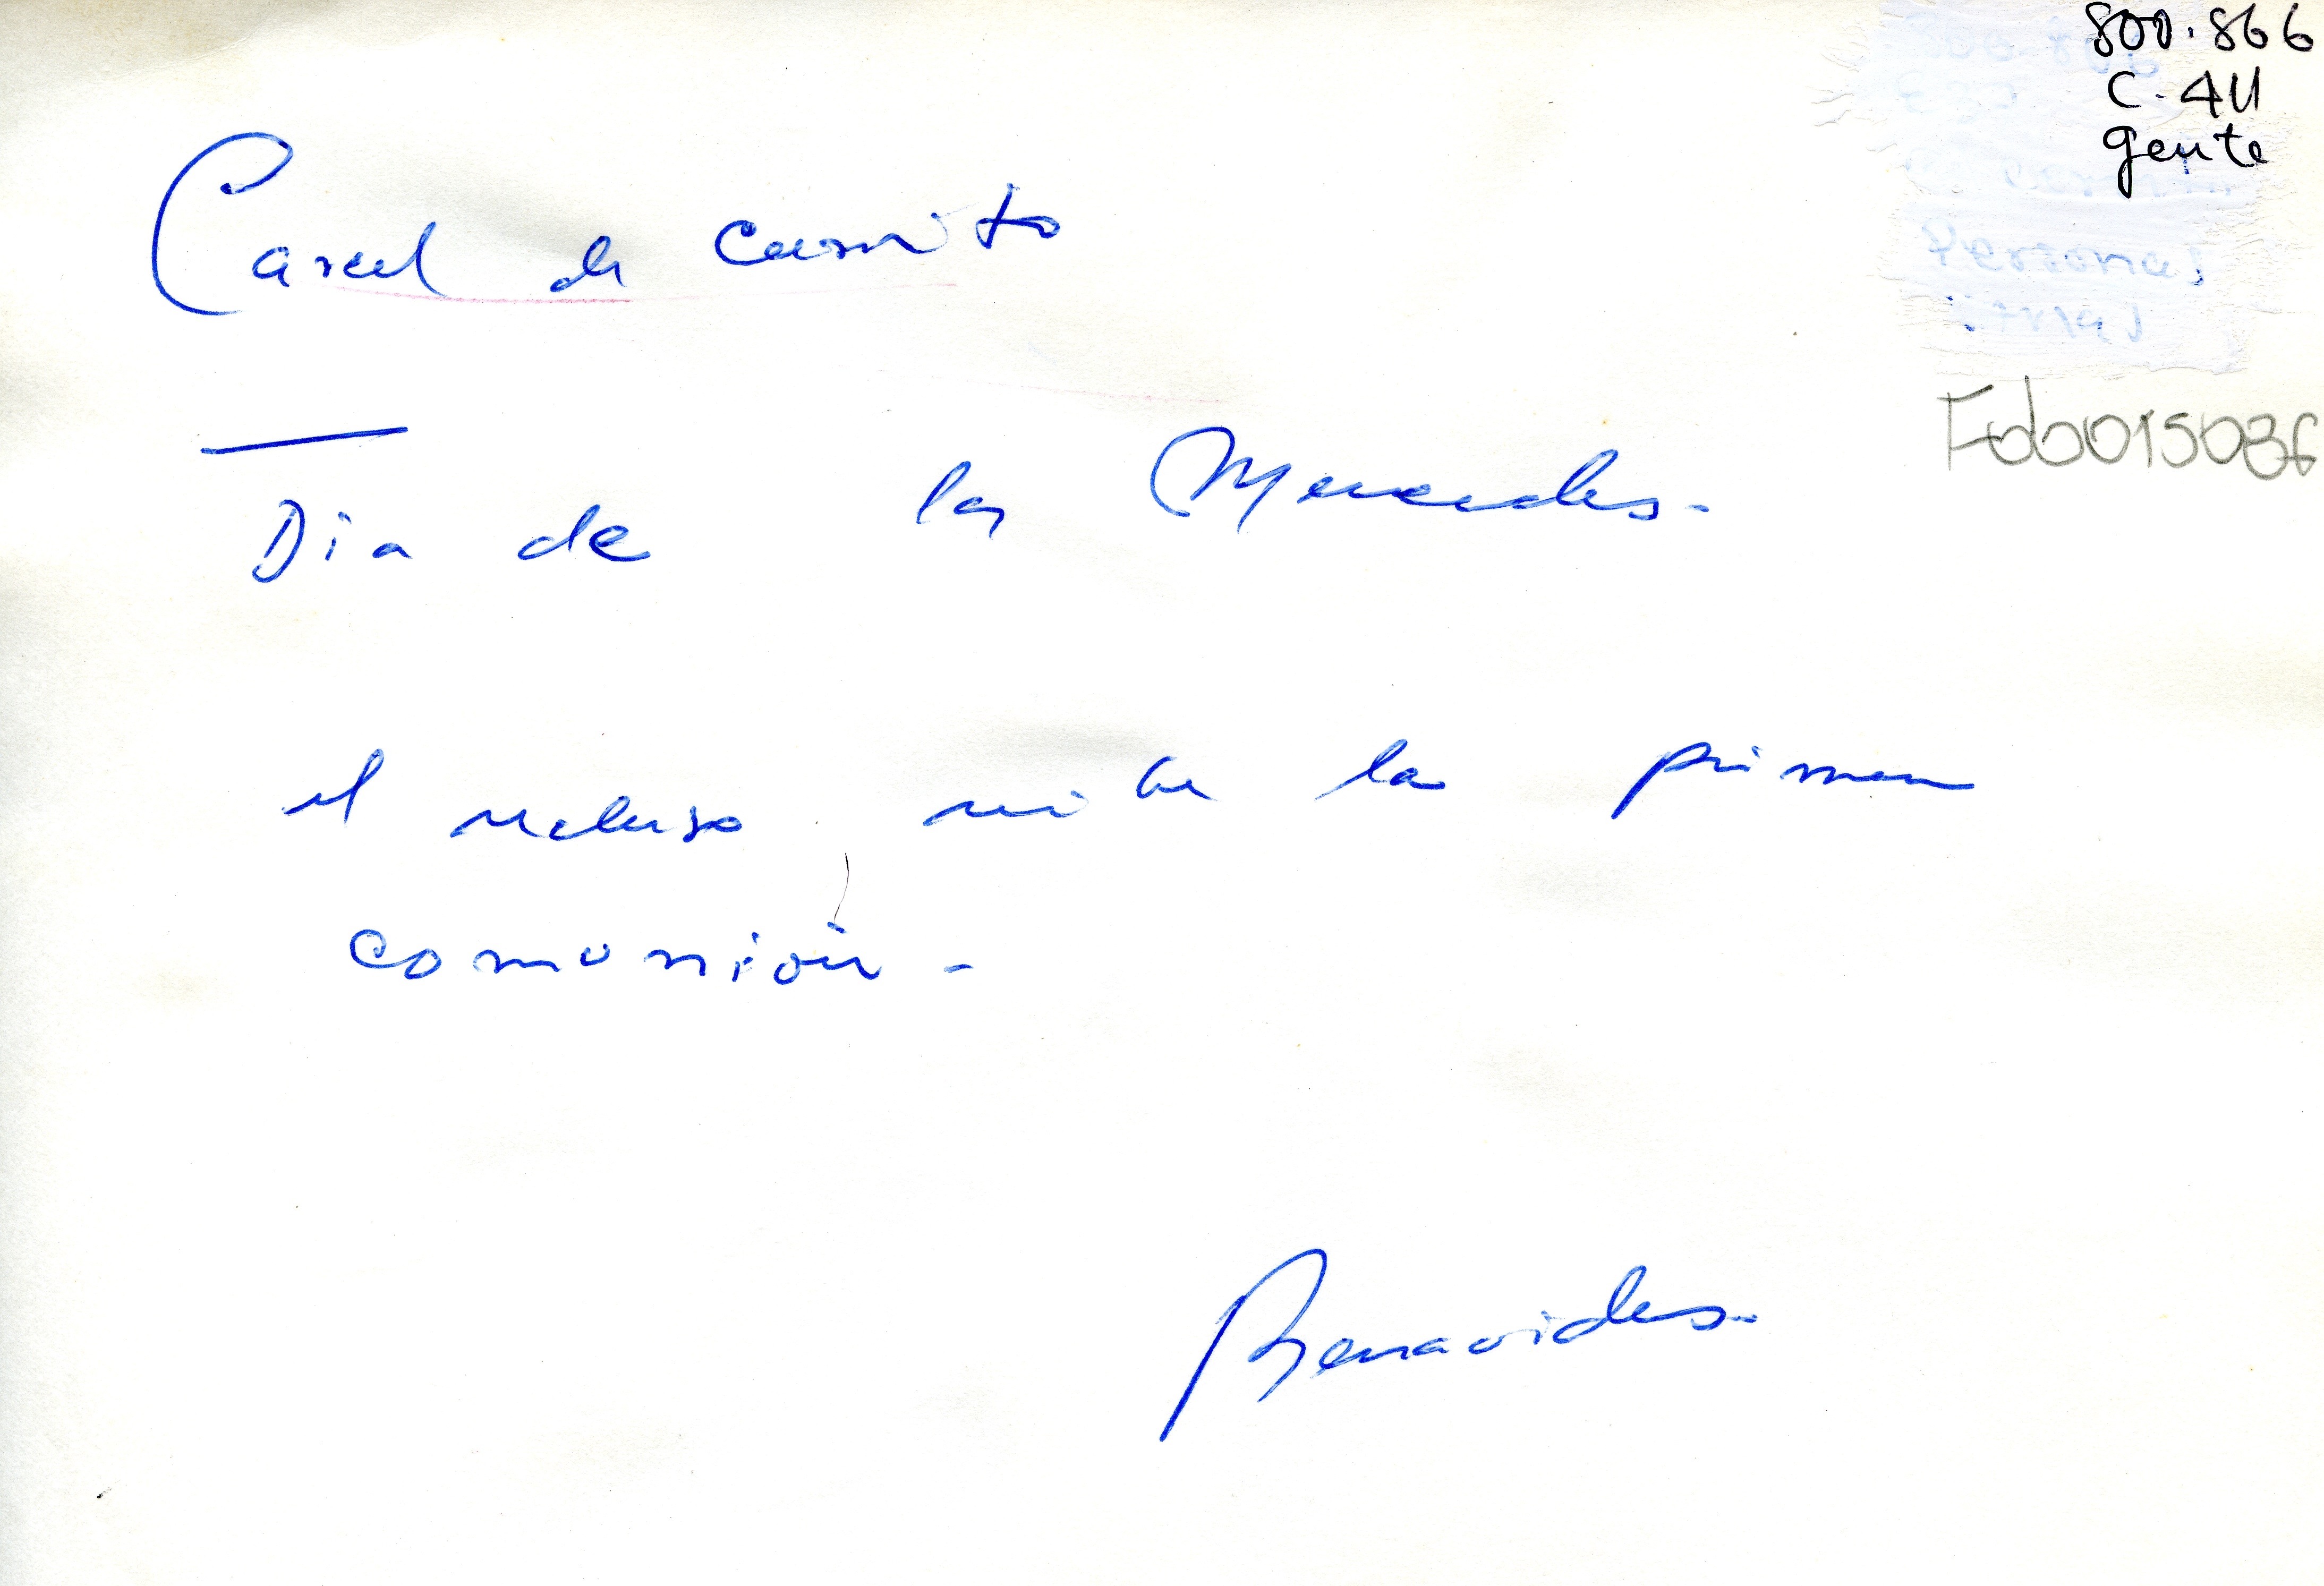 800.866
C.4U
gente
Carcel de Caсrito
Fdb015036
Dia de las Mercedes.
el recluso recibe la primera
comunión -
Benavides.